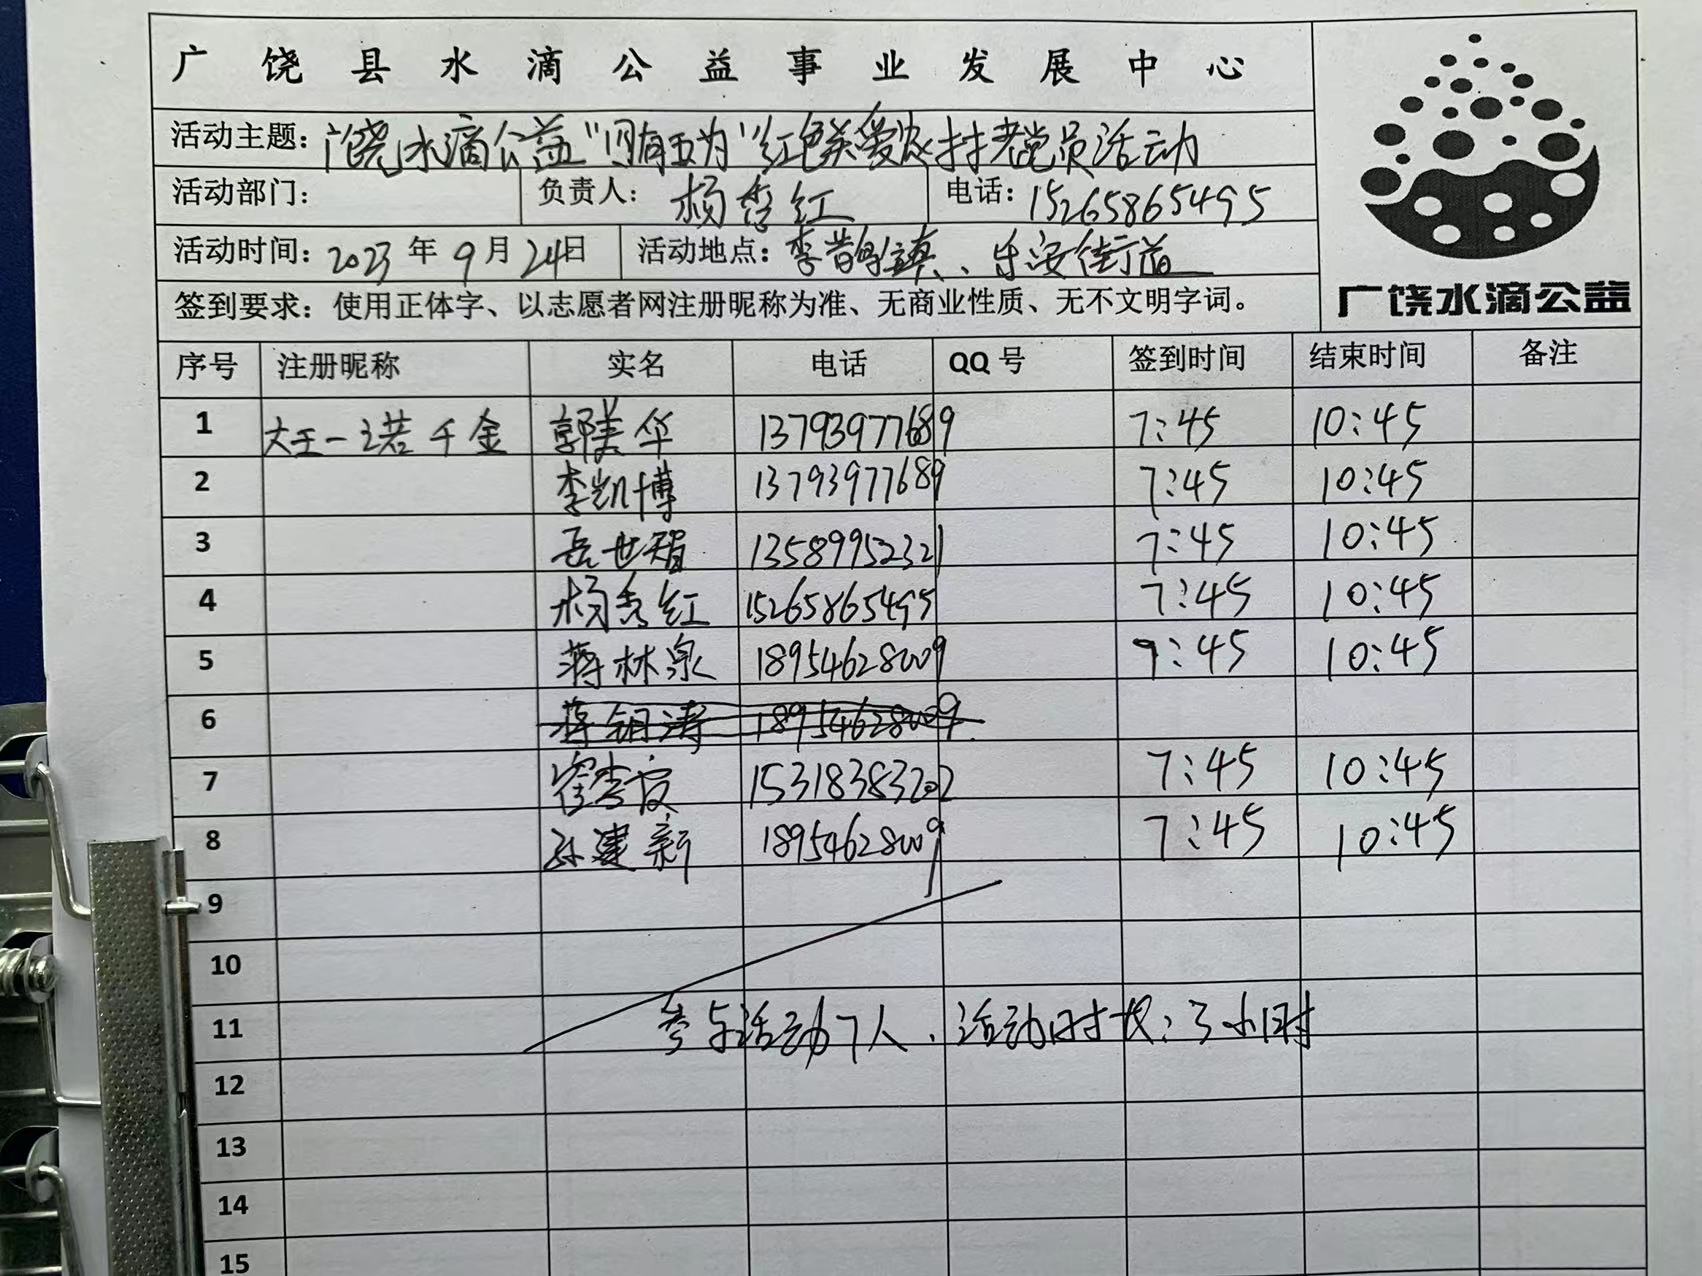 广饶县水滴公益事业发展中心
活动主题：广饶水滴公益“四有五为”红色关爱农村老党员活动
活动部门： 负责人：杨秀红 电话：15265865495
活动时间：2023年9月24日 活动地点：李鹊镇、乐安街道
签到要求：使用正体字、以志愿者网注册昵称为准、无商业性质、无不文明字词。
广饶水滴公益
序号 注册昵称 实名 电话 QQ号 签到时间 结束时间 备注
1 大王一诺千金 郭美华 13793977689 7:45 10:45
2 李凯博 13793977689 7:45 10:45
3 岳世智 13589952321 7:45 10:45
4 杨秀红 15265865495 7:45 10:45
5 蒋林泉 18954628009 9:45 10:45
6 蒋 涛 18954628009
7 崔李 15318383202 7:45 10:45
8 孙建新 18954628009 7:45 10:45
9
10
11 参与活动7人、活动时长：3小时
12
13
14
15